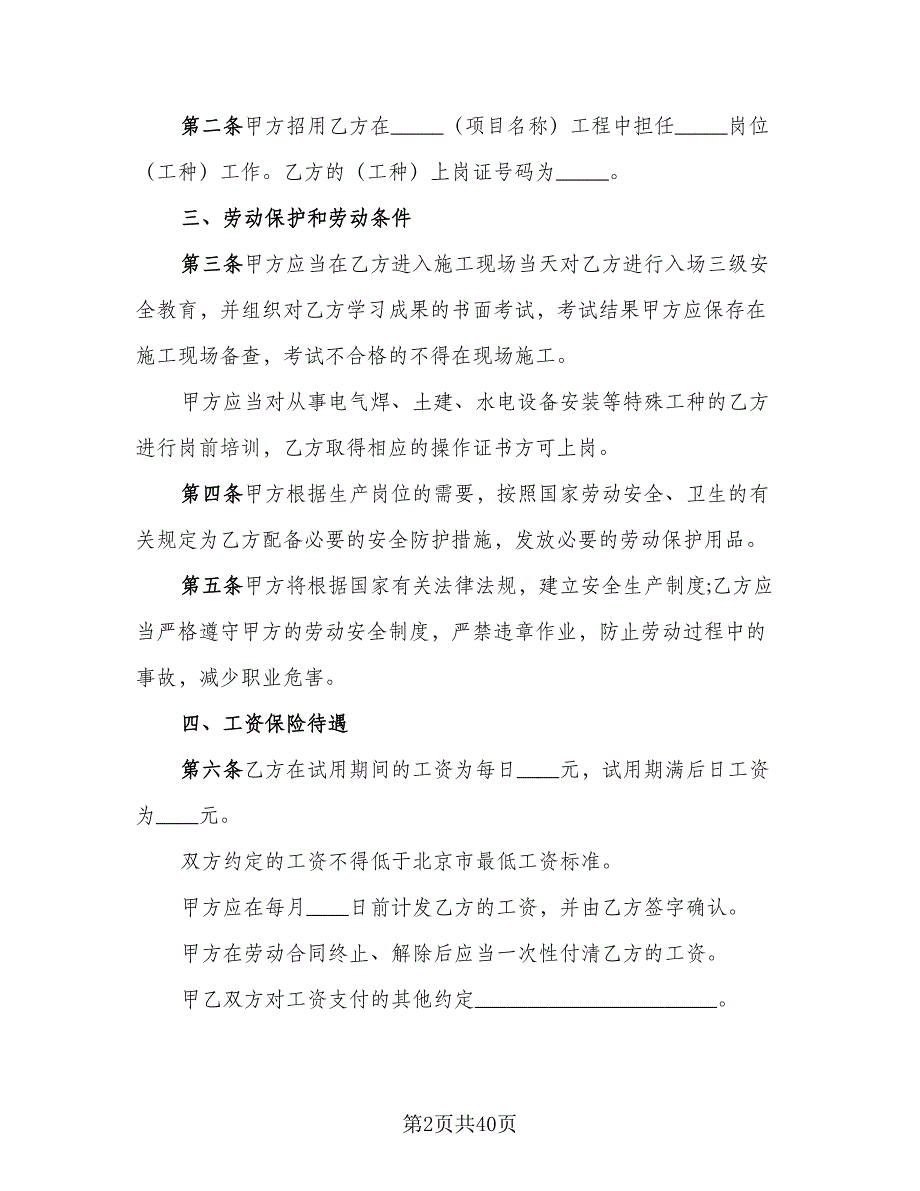 第二条甲方招用乙方在_____（项目名称）工程中担任_____岗位
（工种）工作。乙方的（工种）上岗证号码为_____。
三、劳动保护和劳动条件
第三条甲方应当在乙方进入施工现场当天对乙方进行入场三级安
全教育，并组织对乙方学习成果的书面考试，考试结果甲方应保存在
施工现场备查，考试不合格的不得在现场施工。
甲方应当对从事电气焊、土建、水电设备安装等特殊工种的乙方
进行岗前培训，乙方取得相应的操作证书方可上岗。
第四条甲方根据生产岗位的需要，按照国家劳动安全、卫生的有
关规定为乙方配备必要的安全防护措施，发放必要的劳动保护用品。
第五条甲方将根据国家有关法律法规，建立安全生产制度;乙方应
当严格遵守甲方的劳动安全制度，严禁违章作业，防止劳动过程中的
事故，减少职业危害。
四、工资保险待遇
第六条乙方在试用期间的工资为每日____元，试用期满后日工资
为____元。
双方约定的工资不得低于北京市最低工资标准。
甲方应在每月____日前计发乙方的工资，并由乙方签字确认。
甲方在劳动合同终止、解除后应当一次性付清乙方的工资。
甲乙双方对工资支付的其他约定_______________________。
第2页共40页